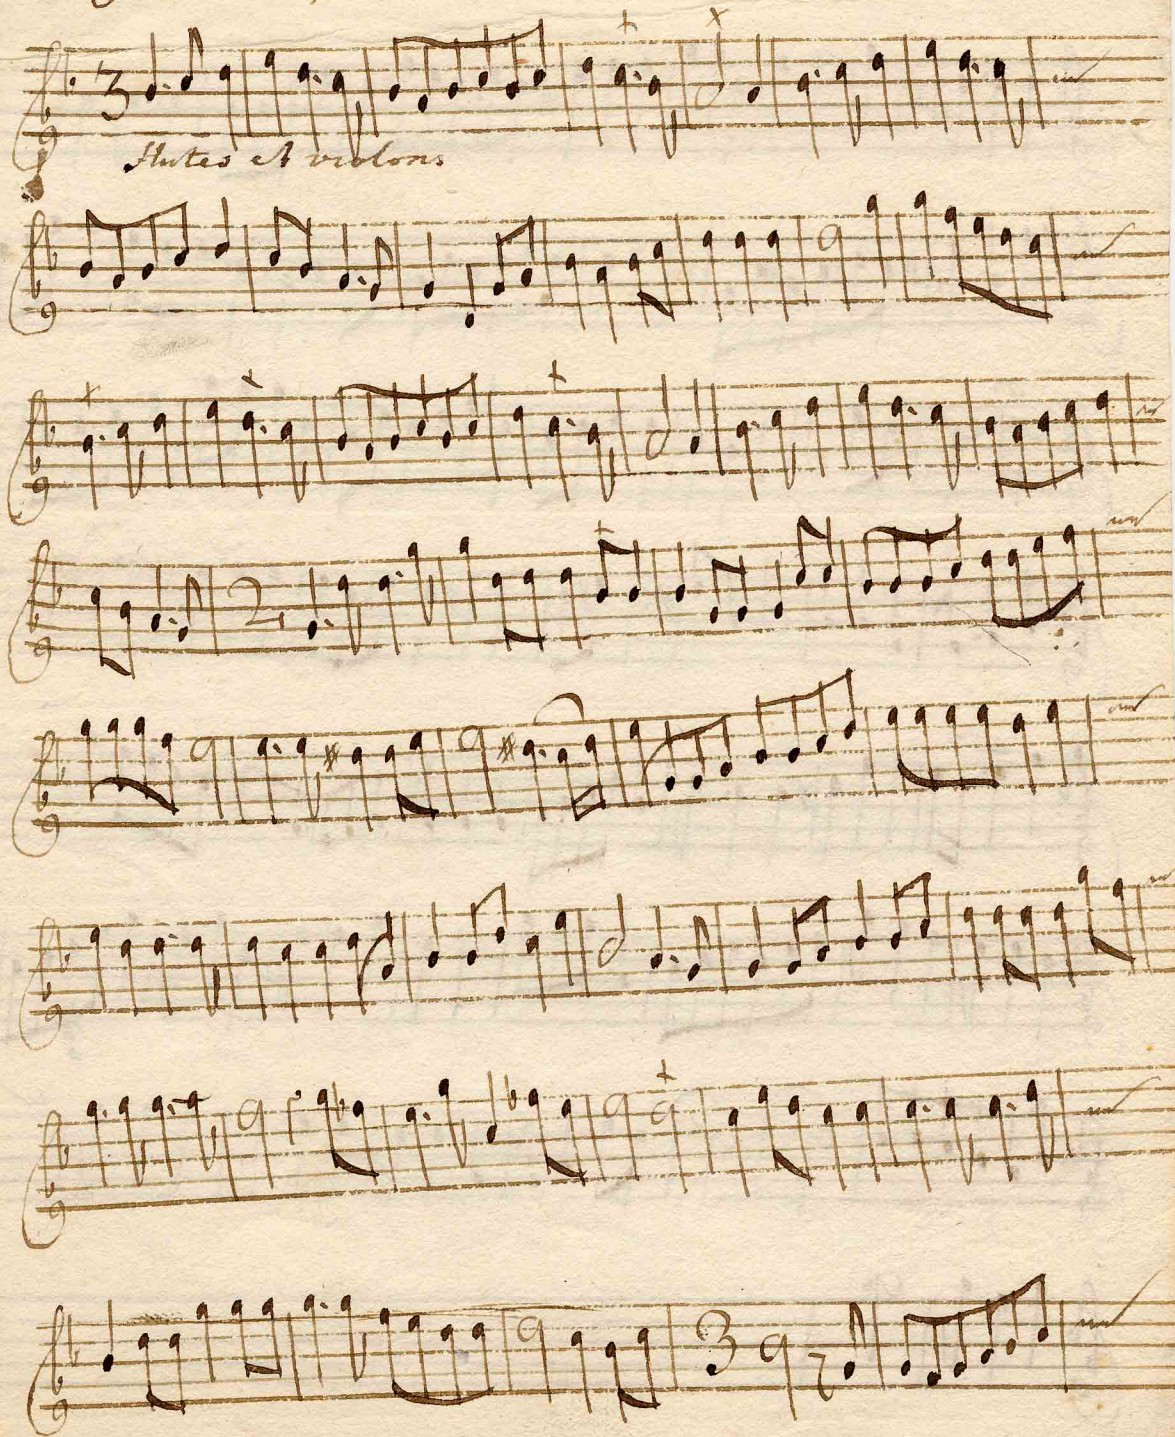 3
flutes et violons
2
3